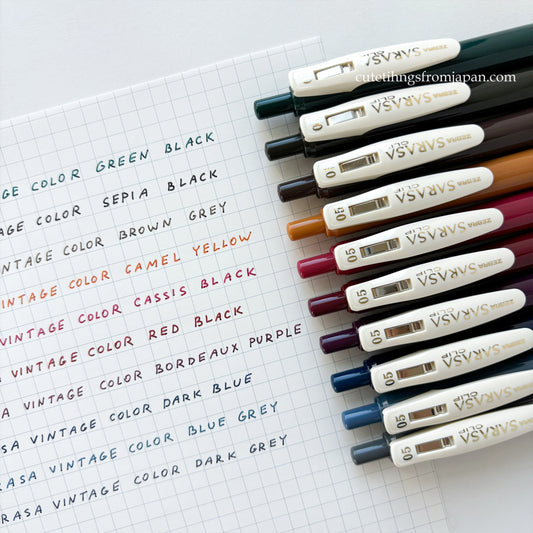 cutetihngsfromjapan.com
GE COLOR GREEN BLACK
AGE COLOR SEPIA BLACK
NTAGE COLOR BROWN GREY
INTAGE COLOR CAMEL YELLOW
VINTAGE COLOR CASSIS BLACK
A VINTAGE COLOR RED BLACK
A VINTAGE COLOR BORDEAUX PURPLE
SA VINTAGE COLOR DARK BLUE
RASA VINTAGE COLOR BLUE GREY
RASA VINTAGE COLOR DARK GREY
ZEBRA SARASA CLIP
ZEBRA SARASA CLIP
ZEBRA SARASA CLIP
05 ZEBRA SARASA CLIP
05 ZEBRA SARASA CLIP
05 ZEBRA SARASA CLIP
05 ZEBRA SARASA CLIP
05 SARASA CLIP
05 SARASA CLIP
05 SARASA CLIP